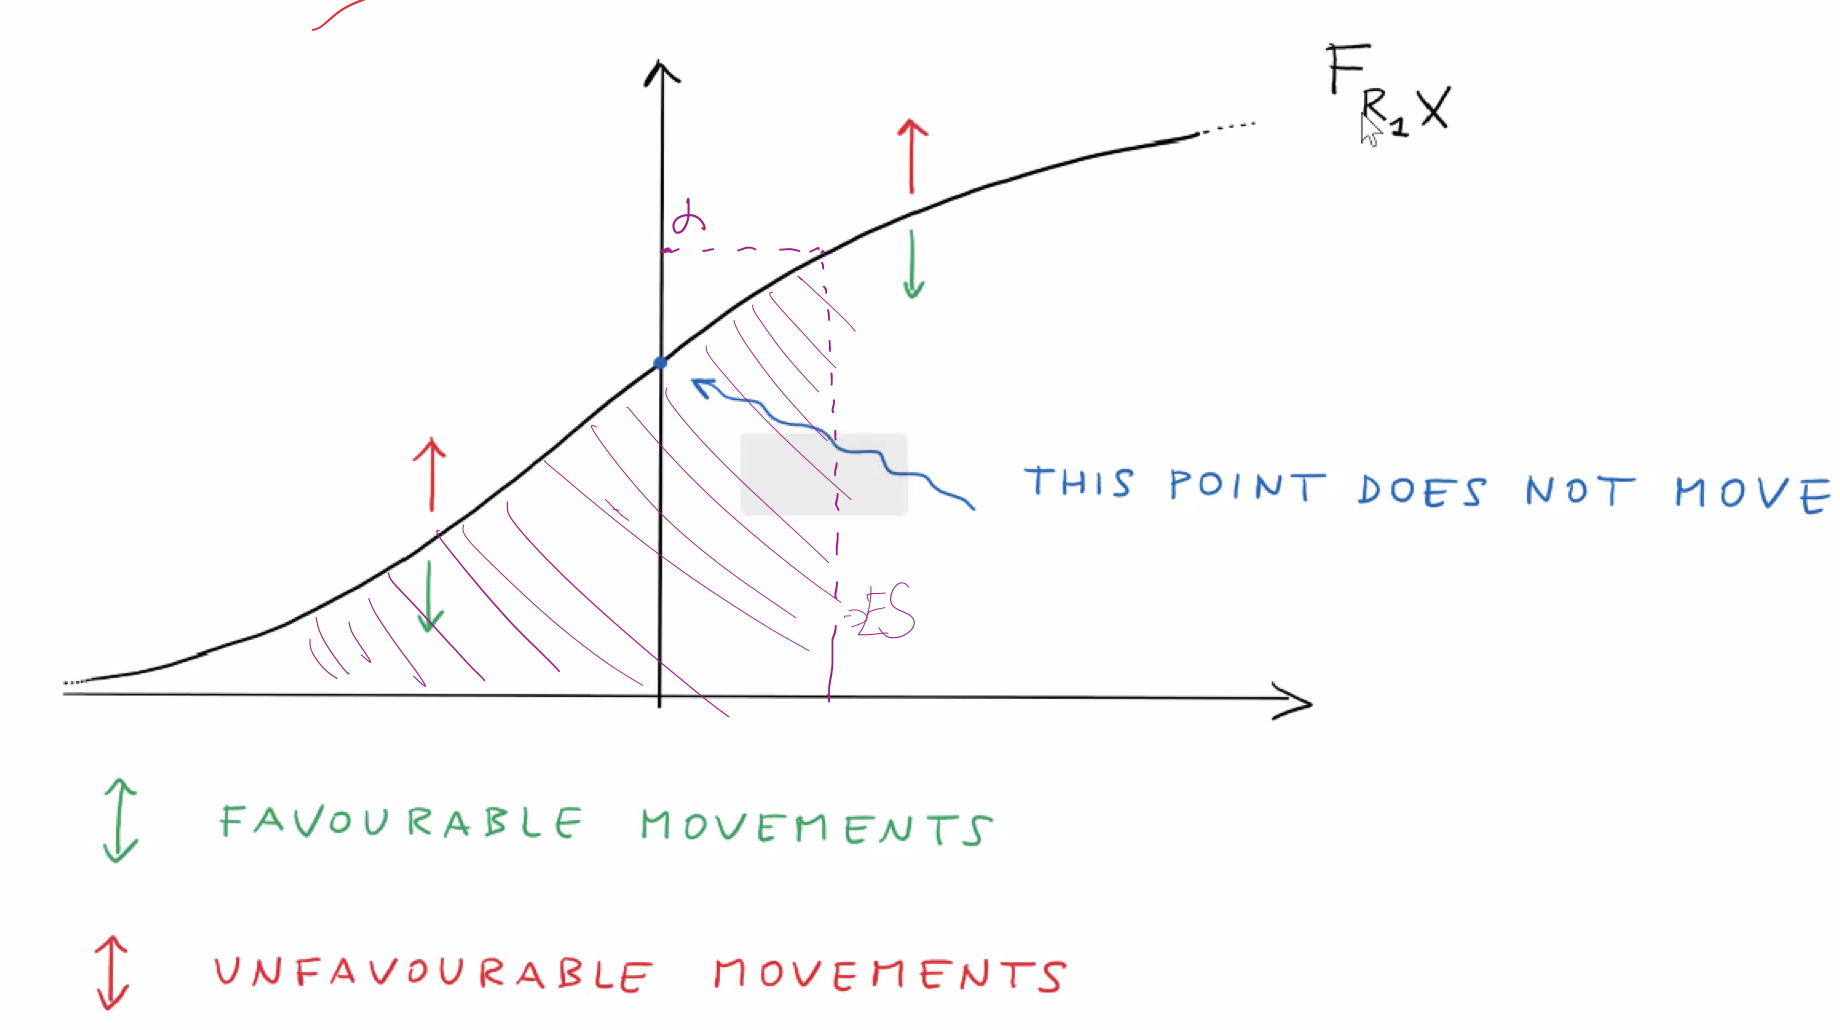 F_{R_1 X}
α
THIS POINT DOES NOT MOVE
=ES
FAVOURABLE MOVEMENTS
UNFAVOURABLE MOVEMENTS